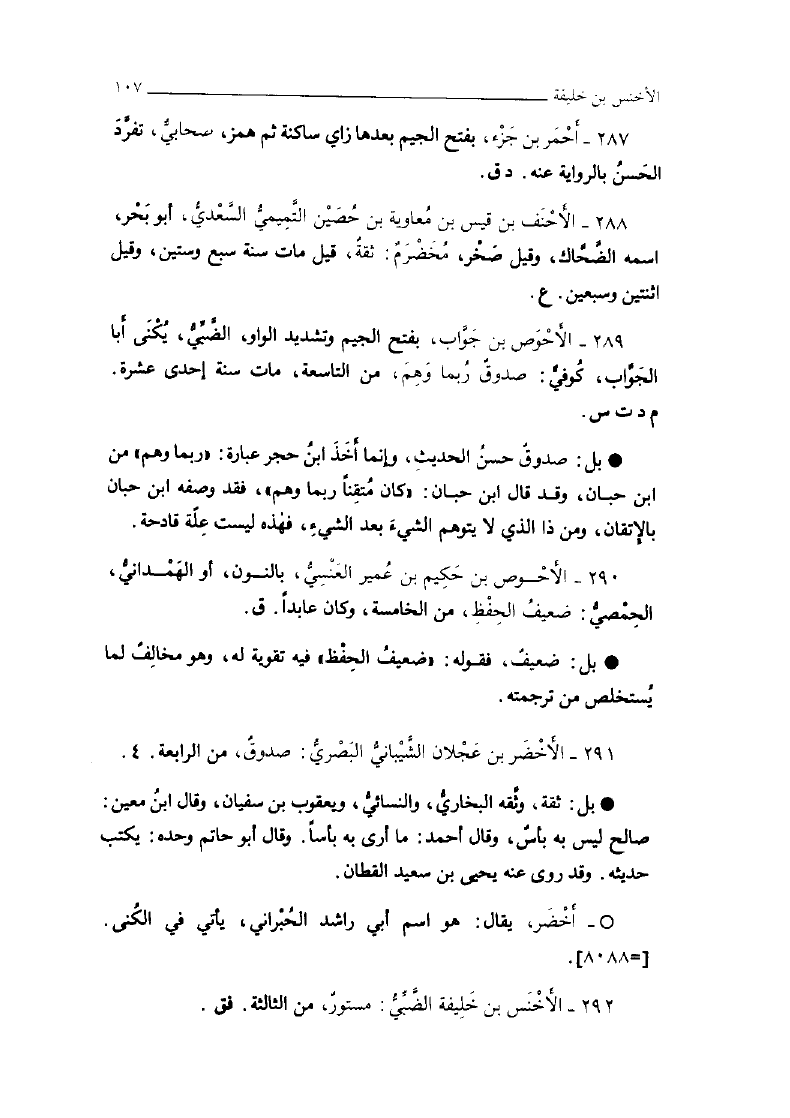 الأخنس بن خليفة ١٠٧
٢٨٧ ـ أَحْمَر بن جَزْء، بفتح الجيم بعدها زاي ساكنة ثم همز، صحابيٌّ، تفرَّدَ
الحَسنُ بالرواية عنه. د ق.
٢٨٨ ـ الأَحْنَف بن قيس بن مُعاوية بن حُصَيْن التَّمِيميُّ السَّعْديُّ، أبو بَحْر،
اسمه الضَّحَّاك، وقيل صَخْر، مُخَضْرَمٌ: ثقةٌ، قيل مات سنة سبع وستين، وقيل
اثنتين وسبعين. ع.
٢٨٩ ـ الأَحْوَص بن جَوَّاب، بفتح الجيم وتشديد الواو، الضَّبِّيُّ، يُكْنَى أَبا
الجَوَّاب، كُوفيٌّ: صدوقٌ رُبما وَهِمَ، من التاسعة، مات سنة إحدى عشرة.
م د ت س.
● بل: صدوقٌ حسنُ الحديثِ، وإنما أَخَذَ ابنُ حجر عبارة: «ربما وهم» من
ابن حبـان، وقـد قال ابن حبـان: «كان مُتقِناً ربما وهم»، فقد وصفه ابن حبان
بالإتقان، ومن ذا الذي لا يتوهم الشيءَ بعد الشيءِ، فهٰذه ليست عِلّة قادحة.
٢٩٠ ـ الأَحْـوص بن حَكِيم بن عُمير العَنْسِيُّ، بالنـون، أو الهَمْـدانيُّ،
الحِمْصيُّ: ضعيفُ الحِفْظِ، من الخامسة، وكان عابداً. ق.
● بل: ضعيفٌ، فقـوله: «ضعيفُ الحفْظ» فيه تقوية له، وهو مخالِفٌ لما
يُستخلص من ترجمته.
٢٩١ ـ الأَخْضَر بن عَجْلان الشَّيْبانيُّ البَصْريُّ: صدوقٌ، من الرابعة. ٤.
● بل: ثقة، وثَّقه البخاريُّ، والنسائيُّ، ويعقوب بن سفيان، وقال ابنُ معين:
صالح ليس به بأسٌ، وقال أحمد: ما أرى به بأساً. وقال أبو حاتم وحده: يكتب
حديثه. وقد روى عنه يحيى بن سعيد القطان.
○ ـ أَخْضَر، يقال: هو اسم أبي راشد الحُبْراني، يأتي في الكُنى.
[=٨٠٨٨].
٢٩٢ ـ الأَخْنَس بن خَلِيفة الضَّبِّيُّ: مستورٌ، من الثالثة. فق .